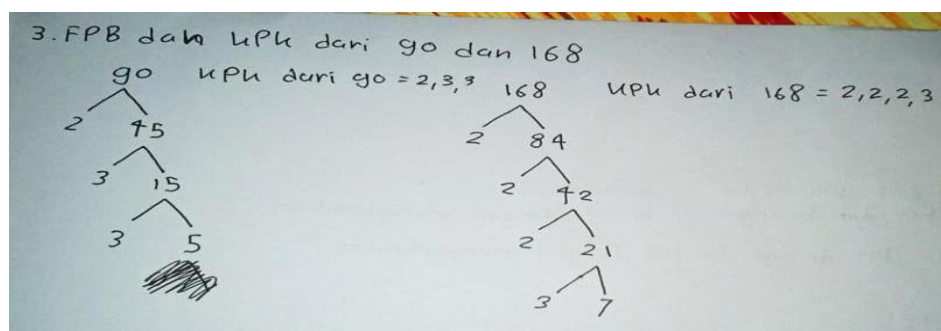 3. FPB dan KPK dari 90 dan 168
90 KPK dari 90 = 2,3,3
2 45
3 15
3 5
168 KPK dari 168 = 2,2,2,3
2 84
2 42
2 21
3 7